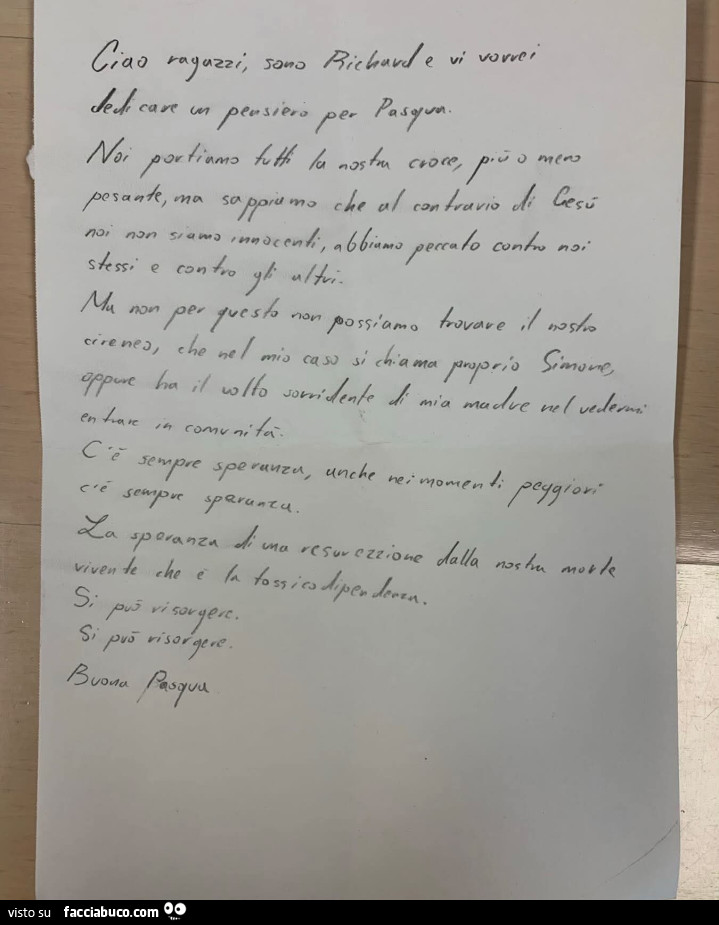 Ciao ragazzi, sono Richard e vi vorrei
dedicare un pensiero per Pasqua.
Noi portiamo tutti la nostra croce, più o meno
pesante, ma sappiamo che al contrario di Gesù
noi non siamo innocenti, abbiamo peccato contro noi
stessi e contro gli altri.
Ma non per questo non possiamo trovare il nostro
cireneo, che nel mio caso si chiama proprio Simone,
oppure ha il volto sorridente di mia madre nel vedermi
entrare in comunità.
C'è sempre speranza, anche nei momenti peggiori
c'è sempre speranza.
La speranza di una resurezzione dalla nostra morte
vivente che è la tossicodipendenza.
Si può risorgere.
Si può risorgere.
Buona Pasqua
visto su facciabuco.com